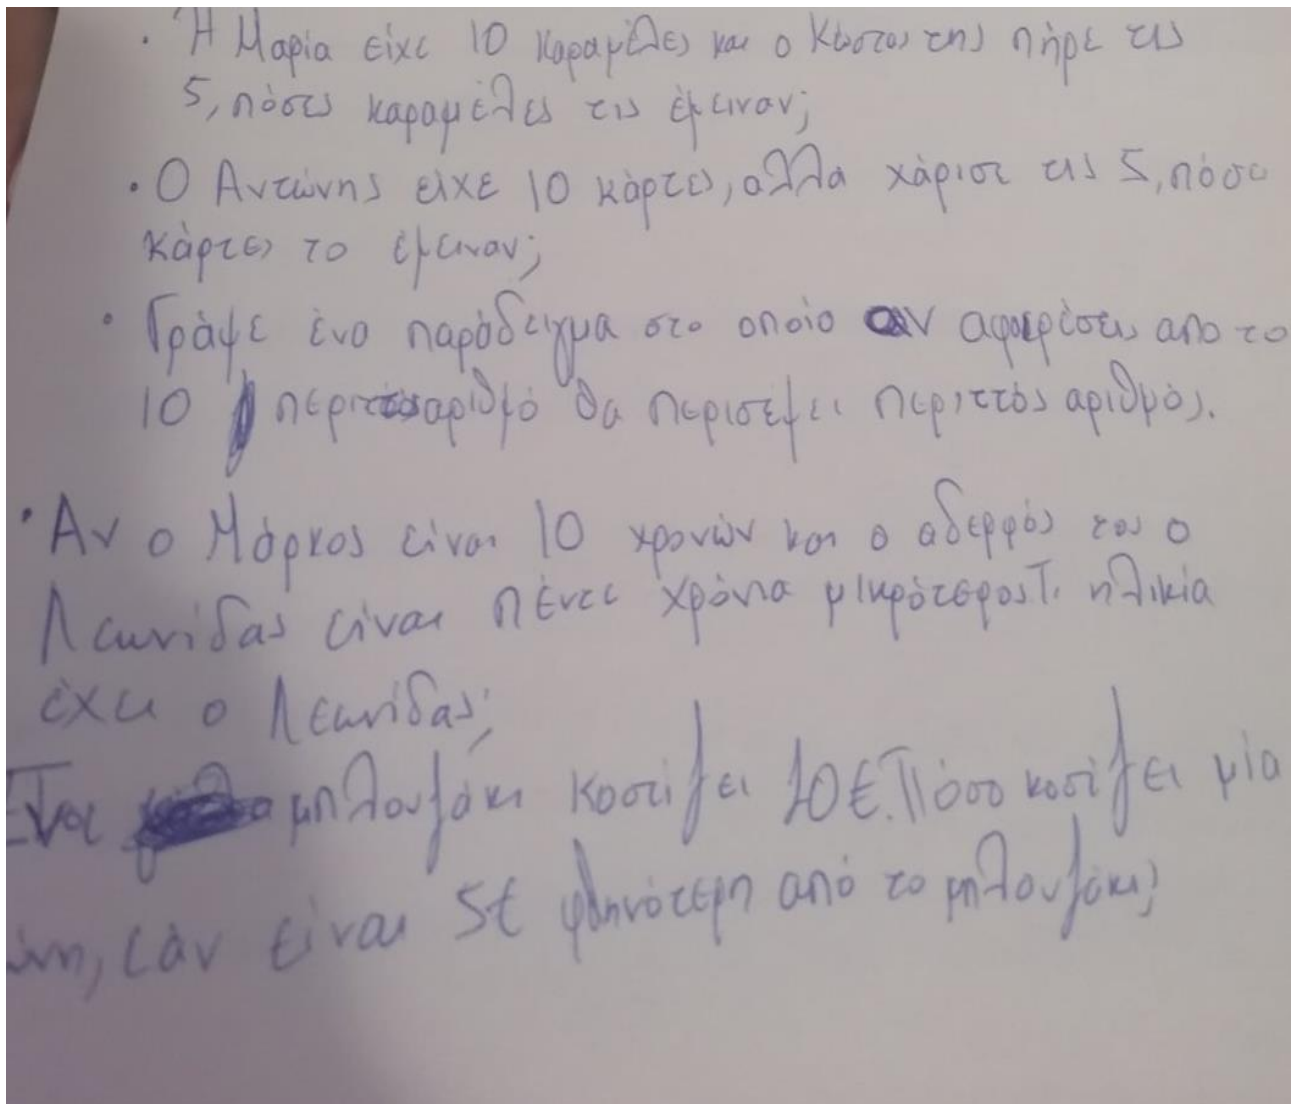 · Η Μαρία είχε 10 καραμέλες και ο Κώστας της πήρε τις
5, πόσες καραμέλες τις έμειναν;
· Ο Αντώνης είχε 10 κάρτες, αλλα χάρισε τις 5, πόσε
κάρτες το έμειναν;
· Γράψε ένα παράδειγμα στο οποίο αν αφαιρέσεις απο το
10 περιττό αριθμό θα περισέψει περιττός αριθμός.
· Αν ο Μάρκος είναι 10 χρονών και ο αδερφός του ο
Λεωνίδας είναι πέντε χρόνια μικρότερος Τι ηλικία
έχει ο Λεωνίδας;
Ένα μπλουζάκι κοστίζει 10€. Πόσο κοστίζει μία
ώνη, εάν είναι 5€ φθηνότερη από το μπλουζάκι;